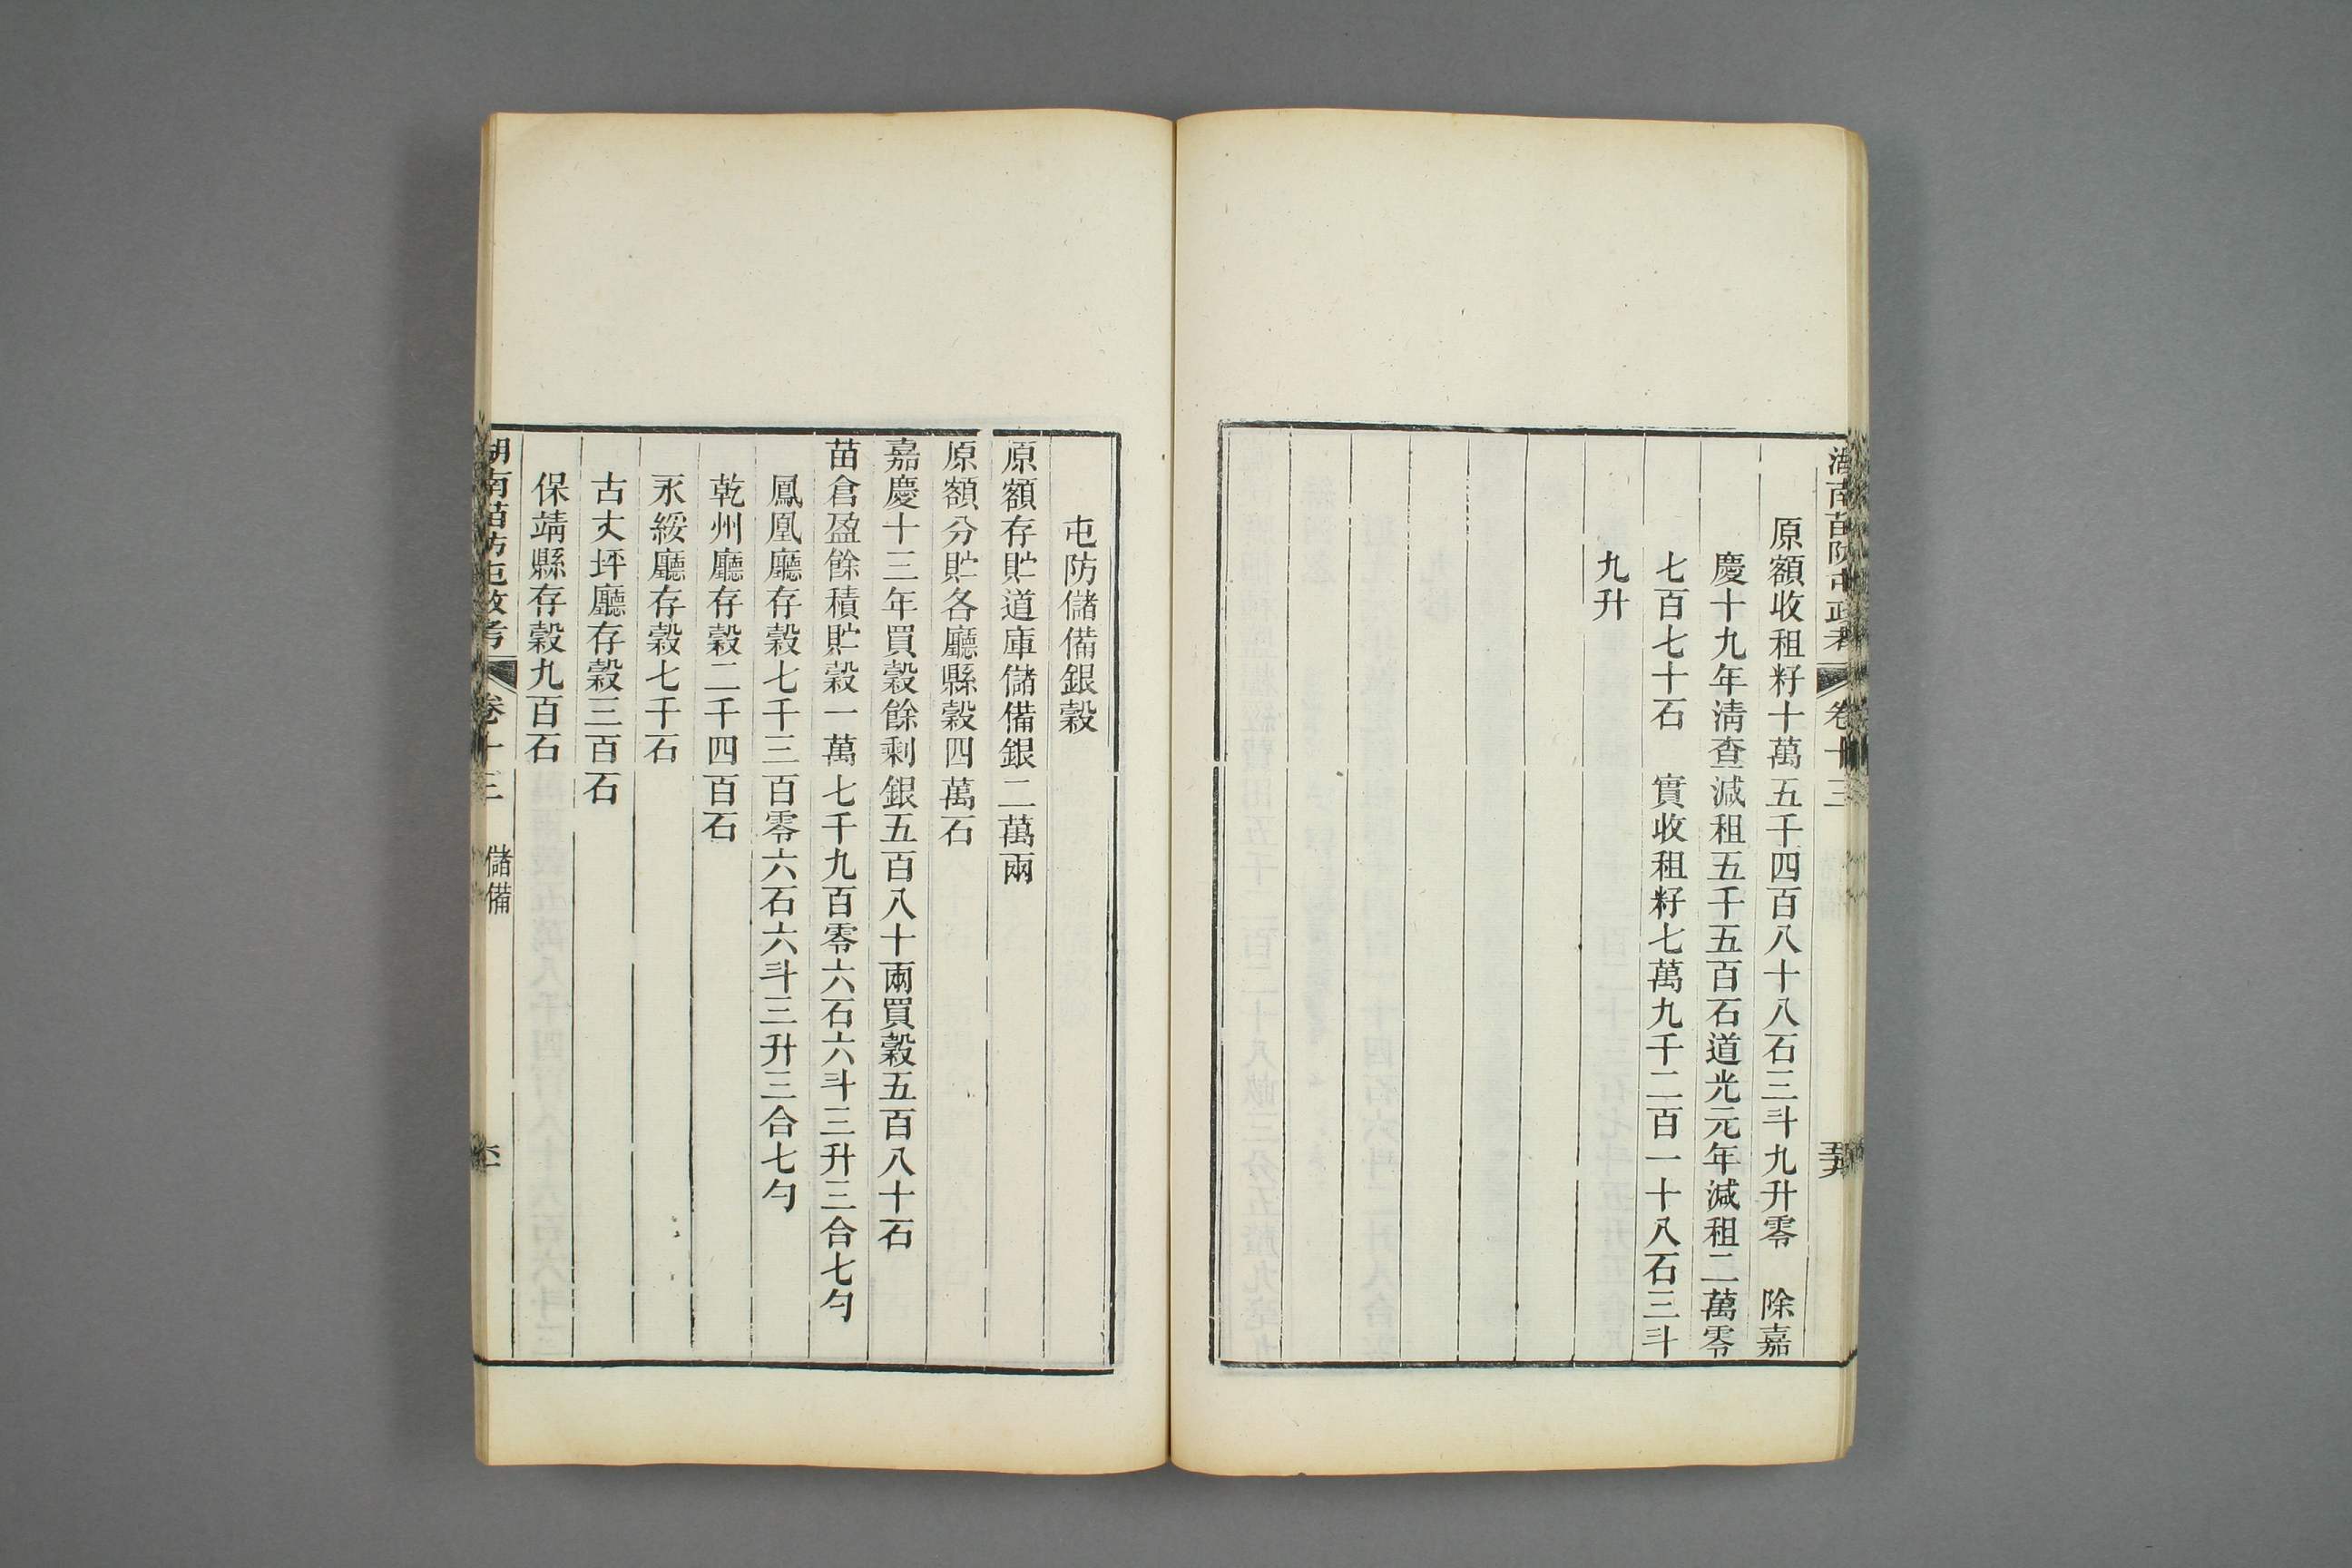 湖南苗防屯政考 卷十三
原額收租籽十萬五千四百八十八石三斗九升零 除嘉
慶十九年清查減租五千五百石道光元年減租二萬零
七百七十石 實收租籽七萬九千二百一十八石三斗
九升
屯防儲備銀穀
原額存貯道庫儲備銀二萬兩
原額分貯各廳縣穀四萬石
嘉慶十三年買穀餘剩銀五百八十兩買穀五百八十石
苗倉盈餘積貯穀一萬七千九百零六石六斗三升三合七勺
鳳凰廳存穀七千三百零六石六斗三升三合七勺
乾州廳存穀二千四百石
永綏廳存穀七千石
古丈坪廳存穀三百石
保靖縣存穀九百石
湖南苗防屯政考 卷十三 儲備